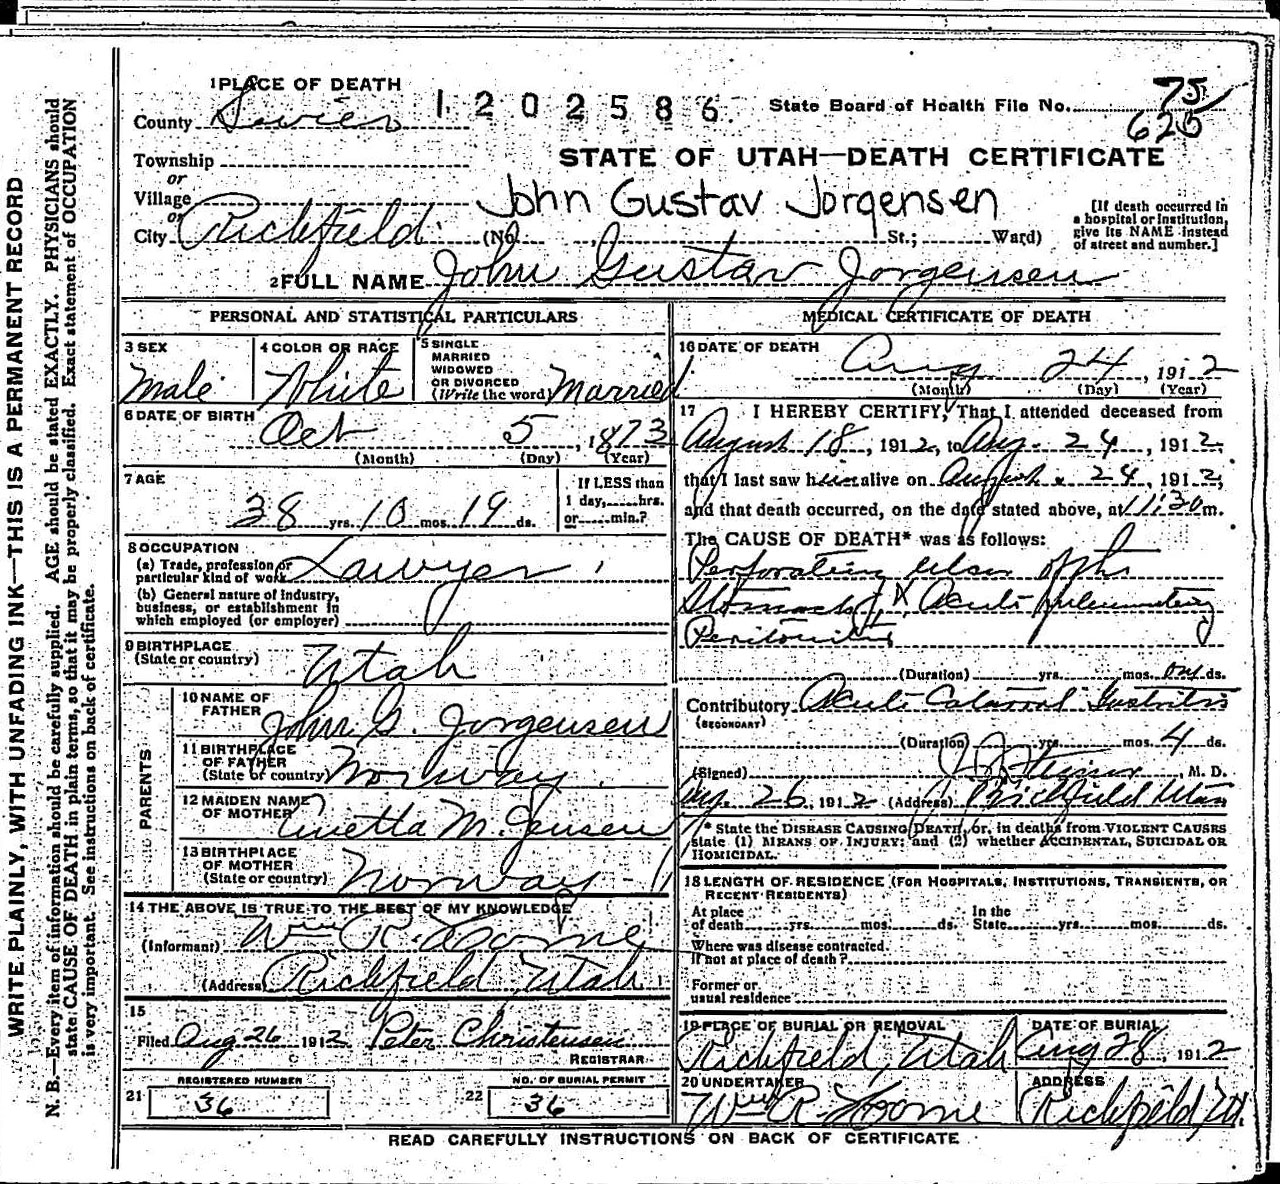 WRITE PLAINLY, WITH UNFADING INK—THIS IS A PERMANENT RECORD
N. B.—Every item of information should be carefully supplied. AGE should be stated EXACTLY. PHYSICIANS should
state CAUSE OF DEATH in plain terms, so that it may be properly classified. Exact statement of OCCUPATION
is very important. See instructions on back of certificate.
1 PLACE OF DEATH
1202586.
State Board of Health File No. 75
625
County Sevier
STATE OF UTAH—DEATH CERTIFICATE
Township
or
Village
or
City Richfield
John Gustav Jorgensen
(No. St.; Ward)
[If death occurred in
a hospital or institution,
give its NAME instead
of street and number.]
2 FULL NAME John Gustav Jorgensen
PERSONAL AND STATISTICAL PARTICULARS
3 SEX
Male
4 COLOR OR RACE
White
5 SINGLE
MARRIED
WIDOWED
OR DIVORCED
(Write the word) Married
6 DATE OF BIRTH
Oct 5, 1873
(Month) (Day) (Year)
7 AGE
38 yrs. 10 mos. 19 ds.
If LESS than
1 day, hrs.
or min.?
8 OCCUPATION
(a) Trade, profession or
particular kind of work Lawyer
(b) General nature of industry,
business, or establishment in
which employed (or employer)
9 BIRTHPLACE
(State or country) Utah
PARENTS
10 NAME OF
FATHER John G. Jorgensen
11 BIRTHPLACE
OF FATHER
(State or country) Norway
12 MAIDEN NAME
OF MOTHER M. Jensen
13 BIRTHPLACE
OF MOTHER
(State or country) Norway
14 THE ABOVE IS TRUE TO THE BEST OF MY KNOWLEDGE
(Informant) Wm R.
(Address) Richfield, Utah
15
Filed Aug 26 1912 Peter Christensen
REGISTRAR
REGISTERED NUMBER
21 36
NO. OF BURIAL PERMIT
22 36
MEDICAL CERTIFICATE OF DEATH
16 DATE OF DEATH
Aug 24, 1912
(Month) (Day) (Year)
17 I HEREBY CERTIFY, That I attended deceased from
August 18, 1912, to Aug. 24, 1912,
that I last saw him alive on August 24, 1912,
and that death occurred, on the date stated above, at 11:30 m.
The CAUSE OF DEATH* was as follows:
Perforating ulcer of the
Stomach Acute
Peritonitis
(Duration) yrs. mos. one ds.
Contributory Acute Catarrhal Gastritis
(SECONDARY)
(Duration) yrs. mos. 4 ds.
(Signed) , M. D.
Aug. 26, 1912 (Address) Richfield Utah
* State the DISEASE CAUSING DEATH, or, in deaths from VIOLENT CAUSES
state (1) MEANS OF INJURY; and (2) whether ACCIDENTAL, SUICIDAL OR
HOMICIDAL.
18 LENGTH OF RESIDENCE (FOR HOSPITALS, INSTITUTIONS, TRANSIENTS, OR
RECENT RESIDENTS)
At place
of death yrs. mos. ds.
In the
State yrs. mos. ds.
Where was disease contracted.
If not at place of death?
Former or
usual residence
19 PLACE OF BURIAL OR REMOVAL
Richfield, Utah
DATE OF BURIAL
Aug 28, 1912
20 UNDERTAKER
Wm R.
ADDRESS
Richfield, Ut.
READ CAREFULLY INSTRUCTIONS ON BACK OF CERTIFICATE